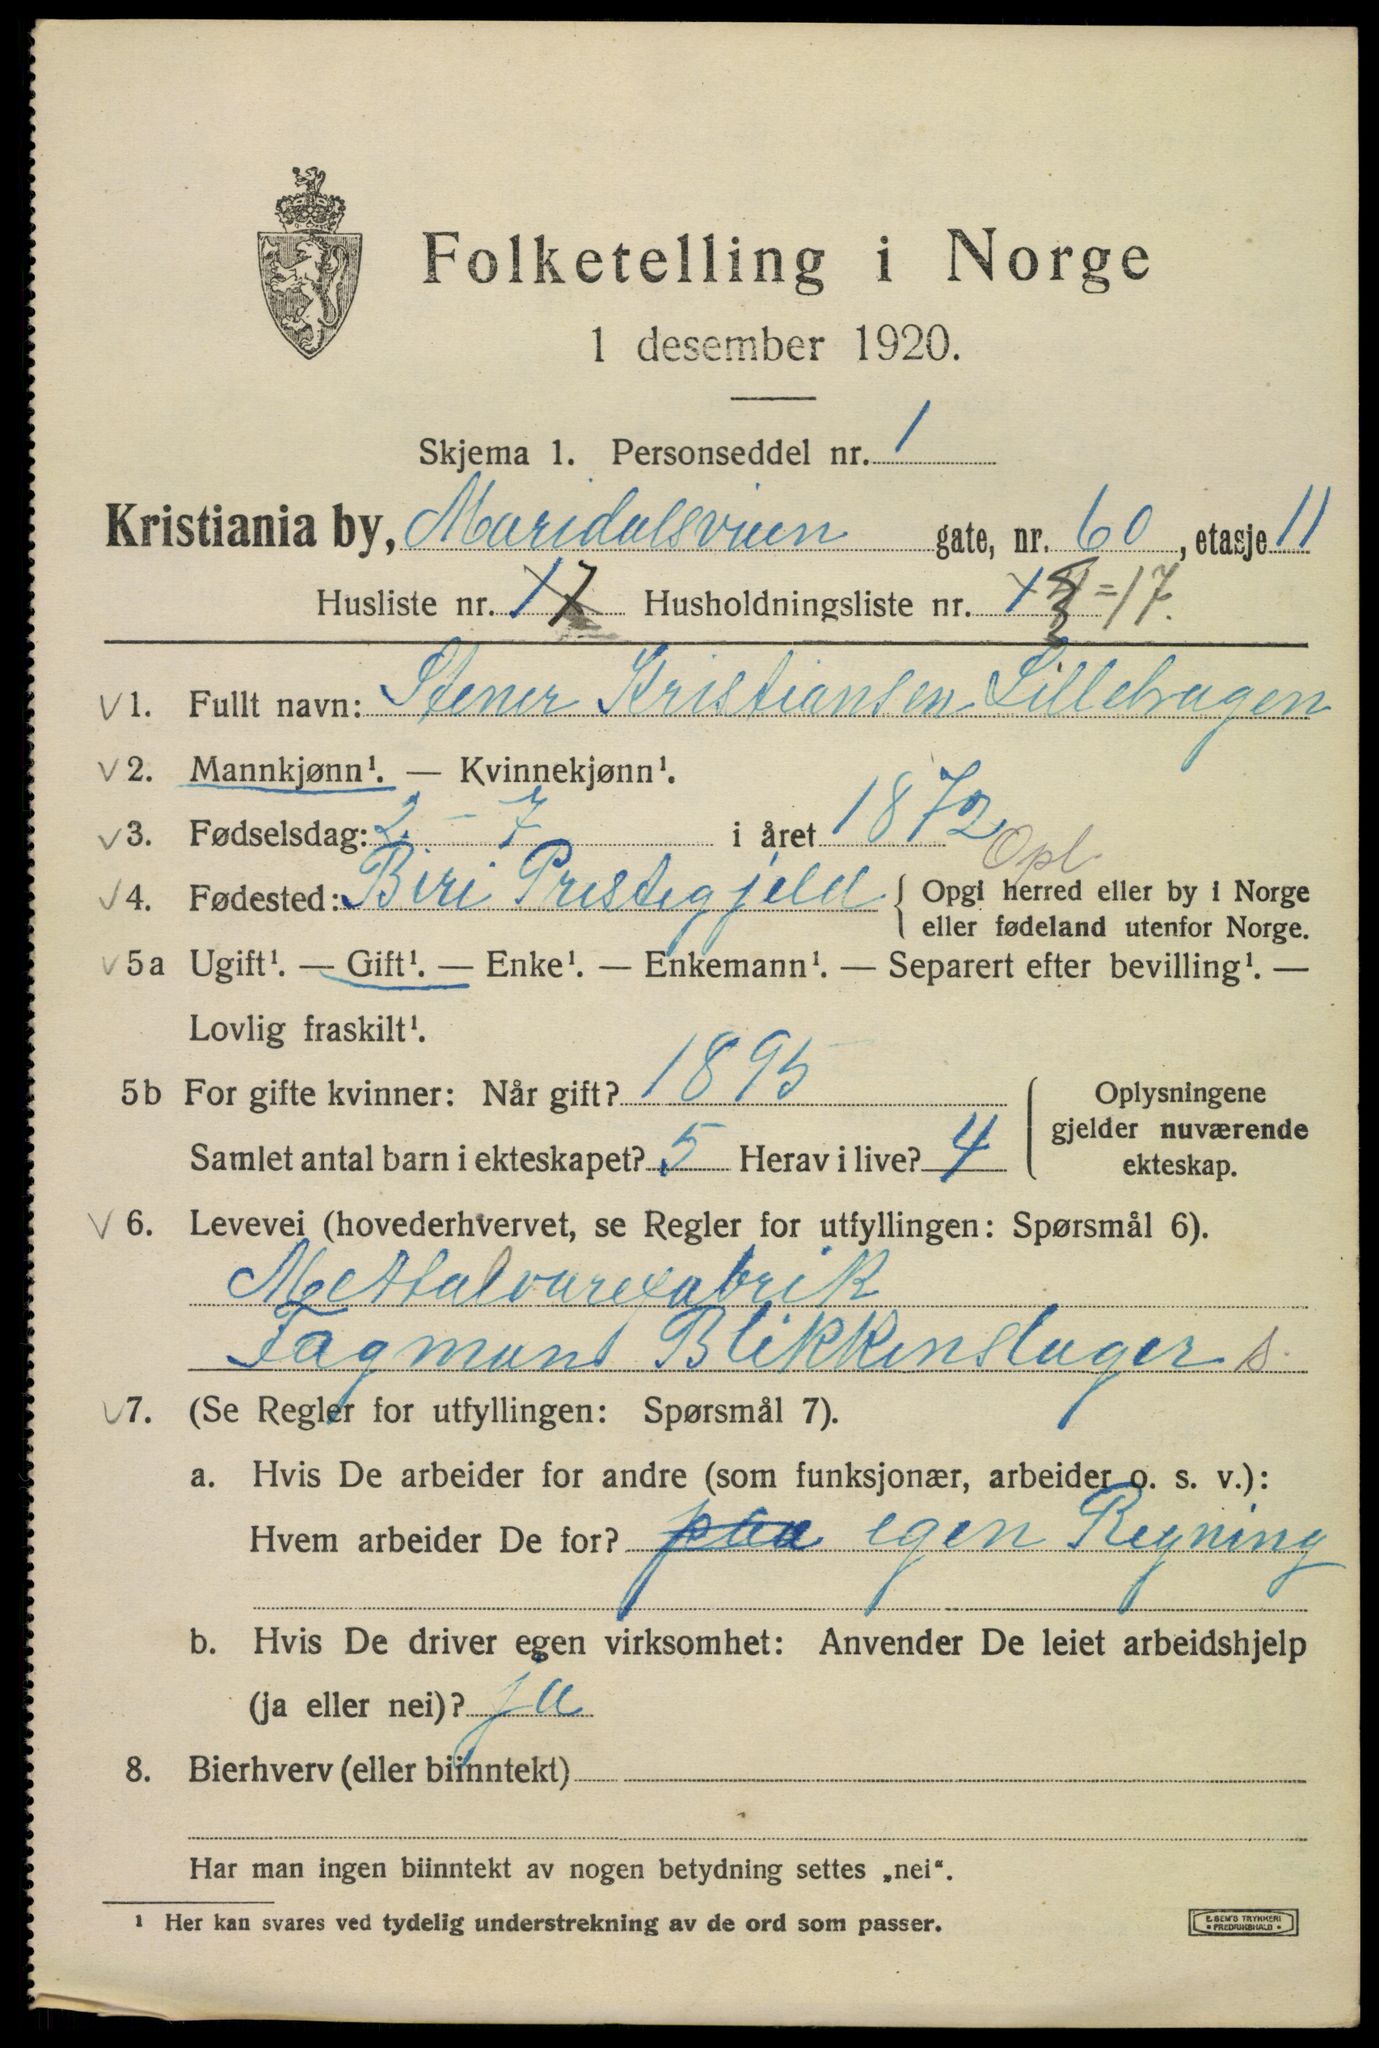 Folketelling i Norge
1 desember 1920.
Skjema 1. Personseddel nr. 1
Kristiania by, Maridalsvieen gate, nr. 60, etasje 11
Husliste nr. 17 Husholdningsliste nr. 1 = 17.
√ 1. Fullt navn: Stener Kristiansen Lillehagen
√ 2. Mannkjønn¹. — Kvinnekjønn¹.
√ 3. Fødselsdag: 2 - 7 i året 1872
Opl.
√ 4. Fødested: Biri Prestegjeld { Opgi herred eller by i Norge
eller fødeland utenfor Norge.
√ 5a Ugift¹. — Gift¹. — Enke¹. — Enkemann¹. — Separert efter bevilling¹. —
Lovlig fraskilt¹.
5b For gifte kvinner: Når gift? 1895
Samlet antal barn i ekteskapet? 5 Herav i live? 4
Oplysningene
gjelder nuværende
ekteskap.
√ 6. Levevei (hovederhvervet, se Regler for utfyllingen: Spørsmål 6).
Mettalvarefabrik
Fagmand Blikkenslager s.
√ 7. (Se Regler for utfyllingen: Spørsmål 7).
a. Hvis De arbeider for andre (som funksjonær, arbeider o. s. v.):
Hvem arbeider De for? paa egen Regning
b. Hvis De driver egen virksomhet: Anvender De leiet arbeidshjelp
(ja eller nei)? ja
8. Bierhverv (eller biinntekt) —
Har man ingen biinntekt av nogen betydning settes „nei“.
¹ Her kan svares ved tydelig understrekning av de ord som passer.
E. SEM'S TRYKKERI
• FREDRIKSHALD •